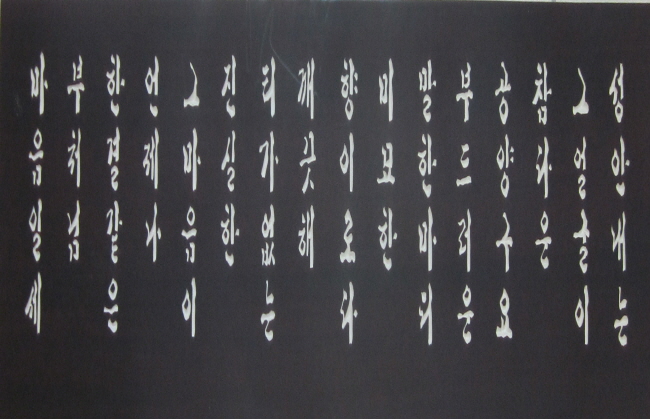 성안내는
그얼굴이
참다운
공양구요
부드러운
말한마디
미묘한
향이로다
깨끗해
티가없는
진실한
그마음이
언제나
한결같은
부처님
마음일세